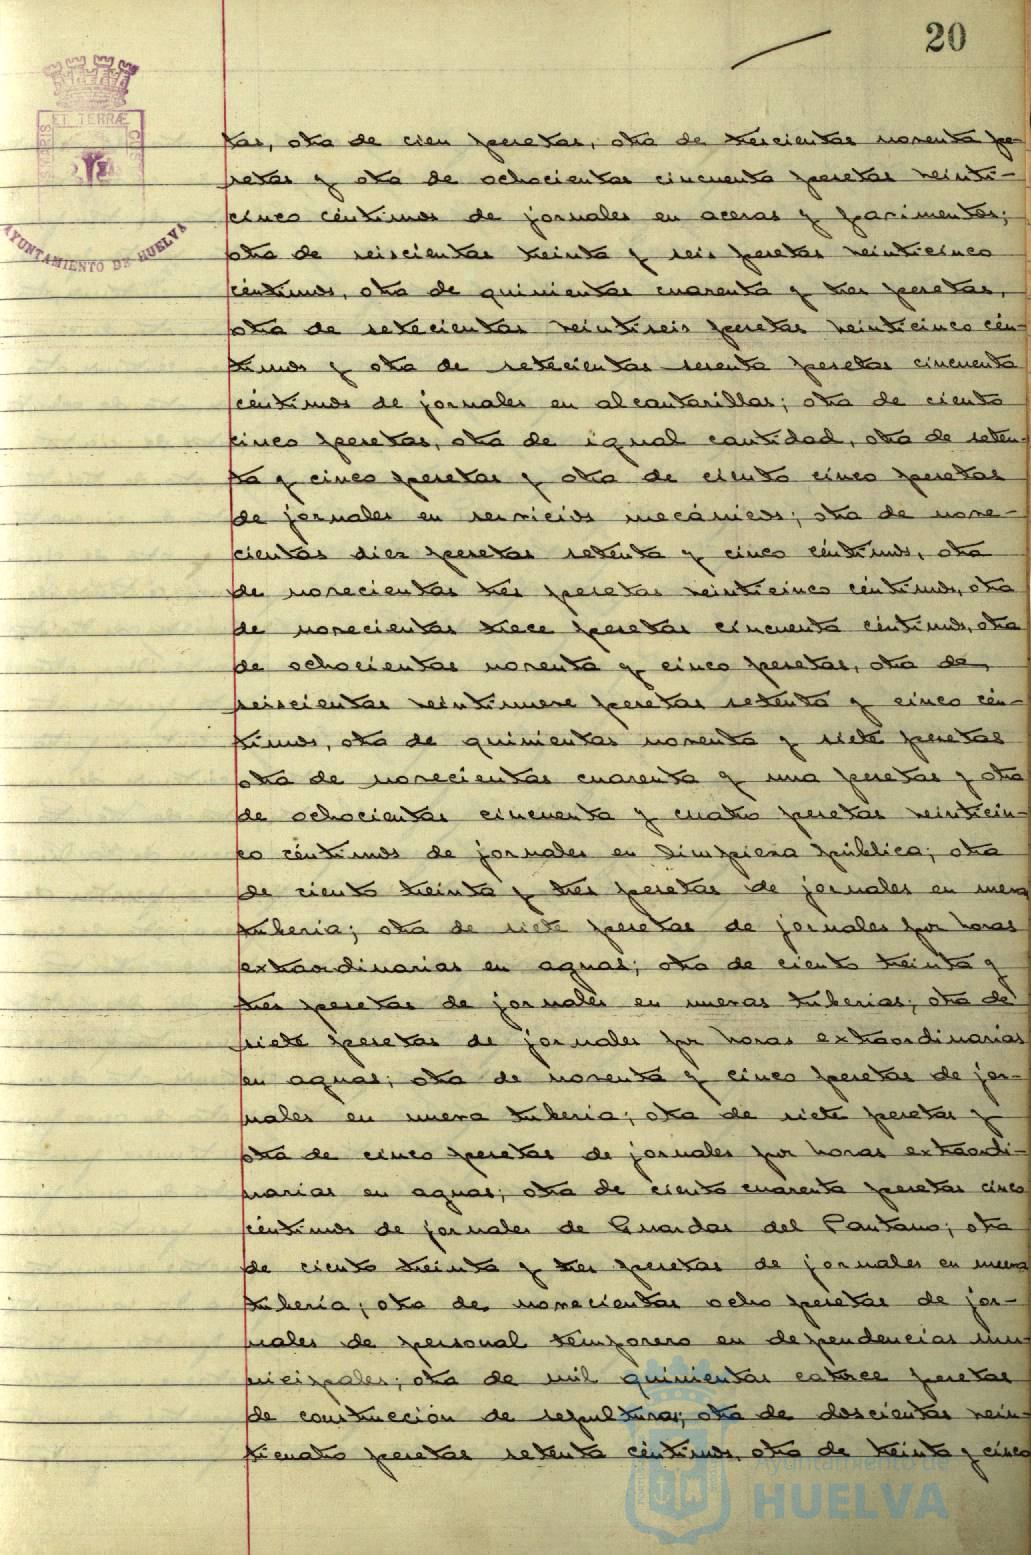 20
ET TERRÆ
AYUNTAMIENTO DE HUELVA
tas, otra de cien pesetas, otra de trescientas noventa pe-
setas y otra de ochocientas cincuenta pesetas veinti-
cinco céntimos de jornales en aceras y pavimentos;
otra de seiscientas treinta y seis pesetas veinticinco
céntimos, otra de quinientas cuarenta y tres pesetas,
otra de setecientas veintiseis pesetas veinticinco cén-
timos y otra de setecientas sesenta pesetas cincuenta
céntimos de jornales en alcantarillas; otra de ciento
cinco pesetas, otra de igual cantidad, otra de seten-
ta y cinco pesetas y otra de ciento cinco pesetas
de jornales en servicios mecánicos; otra de nove-
cientas diez pesetas setenta y cinco céntimos, otra
de novecientas tres pesetas veinticinco céntimos, otra
de novecientas trece pesetas cincuenta céntimos, otra
de ochocientas noventa y cinco pesetas, otra de,
seiscientas veintinueve pesetas setenta y cinco cén-
timos, otra de quinientas noventa y siete pesetas
otra de novecientas cuarenta y una pesetas y otra
de ochocientas cincuenta y cuatro pesetas veinticin-
co céntimos de jornales en limpieza pública; otra
de ciento treinta y tres pesetas de jornales en nueva
tubería; otra de siete pesetas de jornales por horas
extraordinarias en aguas; otra de ciento treinta y
tres pesetas de jornales en nuevas tuberias; otra de
siete pesetas de jornales por horas extraordinarias
en aguas; otra de noventa y cinco pesetas de jor-
nales en nueva tubería; otra de siete pesetas y
otra de cinco pesetas de jornales por horas extraordi-
narias en aguas; otra de ciento cuarenta pesetas cinco
céntimos de jornales de Guardas del Pantano; otra
de ciento treinta y tres pesetas de jornales en nueva
tubería; otra de novecientas ocho pesetas de jor-
nales de personal temporero en dependencias mu-
nicipales; otra de mil quinientas catorce pesetas
de construcción de sepulturas; otra de doscientas vein-
ticuatro pesetas setenta céntimos, otra de treinta y cinco
Ayuntamiento de
HUELVA